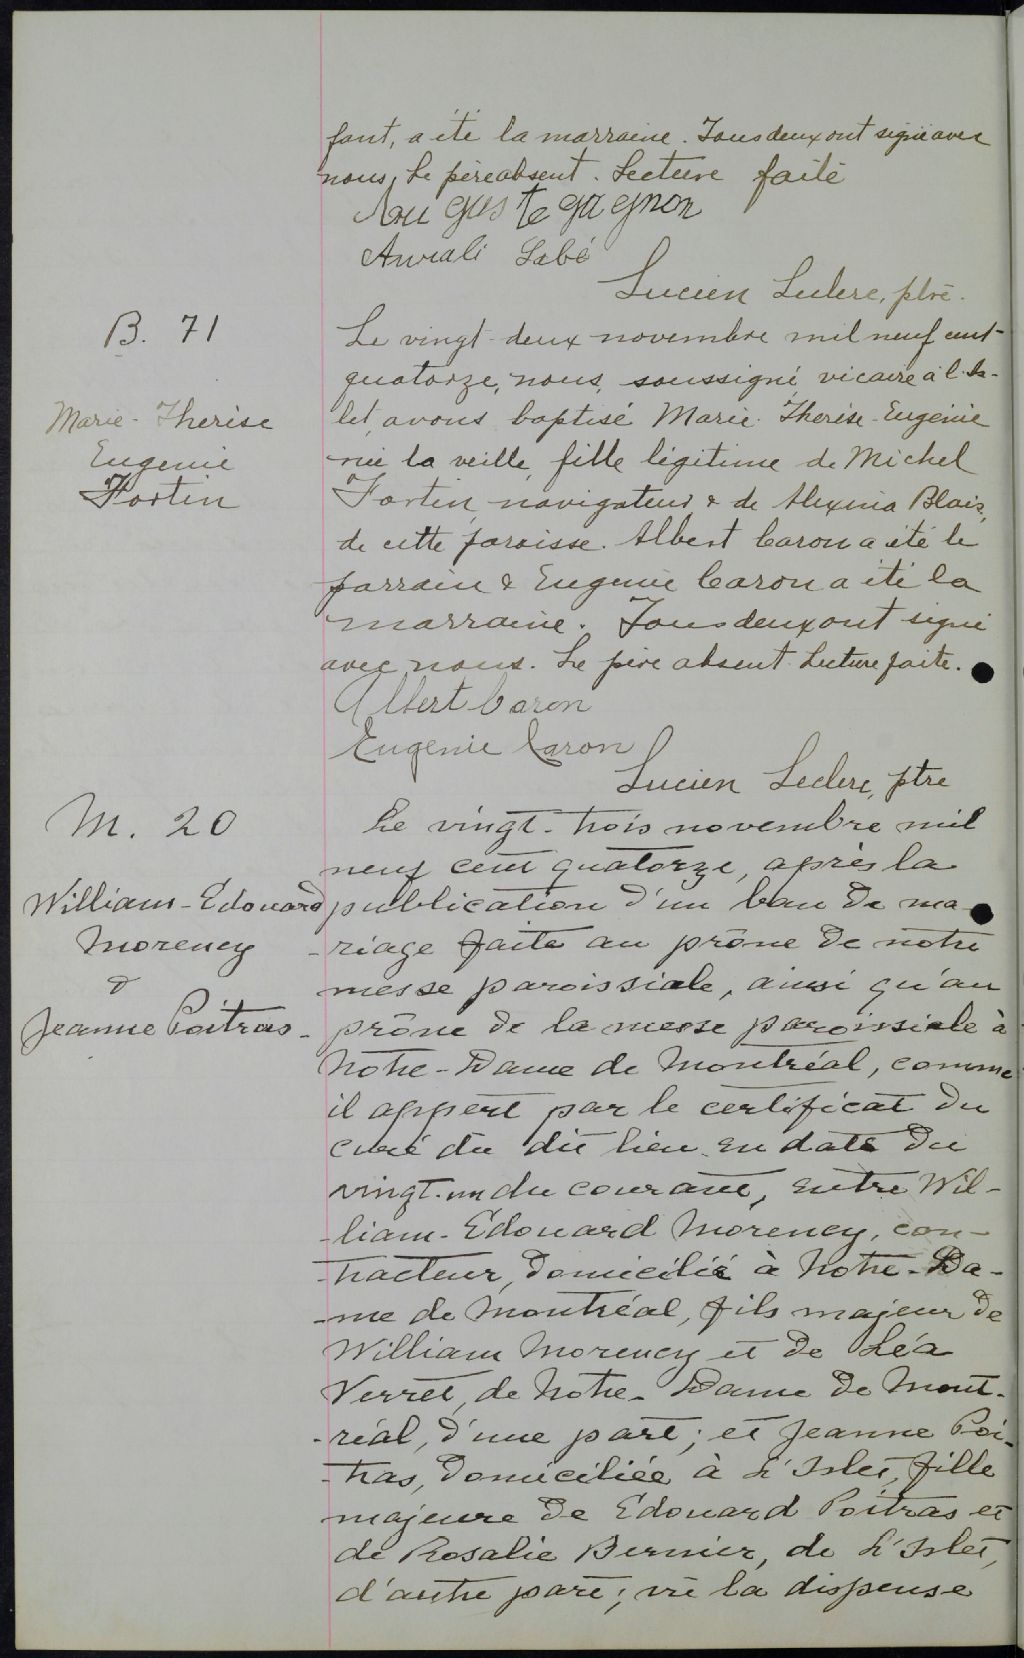 fant, a été la marraine. Tous deux ont signé avec
nous. Le père absent. Lecture faite
Auguste gagnon
Labé
Lucien Leclerc, ptre.
B. 71
Marie-Therèse
Eugenie
Fortin
Le vingt-deux novembre mil neuf cent
quatorze, nous, soussigné vicaire à l'Is-
let, avons baptisé Marie-Therèse-Eugénie
née la veille, fille légitime de Michel
Fortin, navigateur & de Alexina Blais,
de cette paroisse. Albert Caron a été le
parrain & Eugenie Caron a été la
marraine. Tous deux ont signé
avec nous. Le père absent. Lecture faite.
Albert Caron
Eugenie Caron
Lucien Leclerc, ptre
M. 20
William-Edouard
Morency
&
Jeanne Poitras-
Le vingt-trois novembre mil
neuf cent quatorze, après la
publication d'un ban de ma-
-riage faite au prône de notre
messe paroissiale, ainsi qu'au
prône de la messe paroissiale à
Notre-Dame de Montréal, comme
il appert par le certificat du
curé du dit lieu en date du
vingt-un du courant, entre Wil-
-liam-Edouard Morency, con-
-tracteur, domicilié à Notre-Da-
-me de Montréal, fils majeur de
William Morency et de Léa
Verret, de Notre-Dame de Mont-
-réal, d'une part; et Jeanne Poi-
-tras, domiciliée à L'Islet, fille
majeure de Edouard Poitras et
de Rosalie Bernier, de L'Islet,
d'autre part; vu la dispense